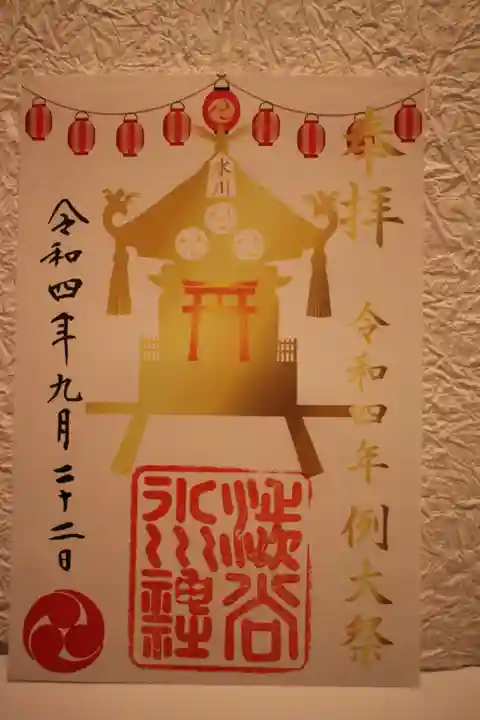 奉拝 令和四年例大祭
氷川
令和四年九月二十二日
渋谷
氷川神社